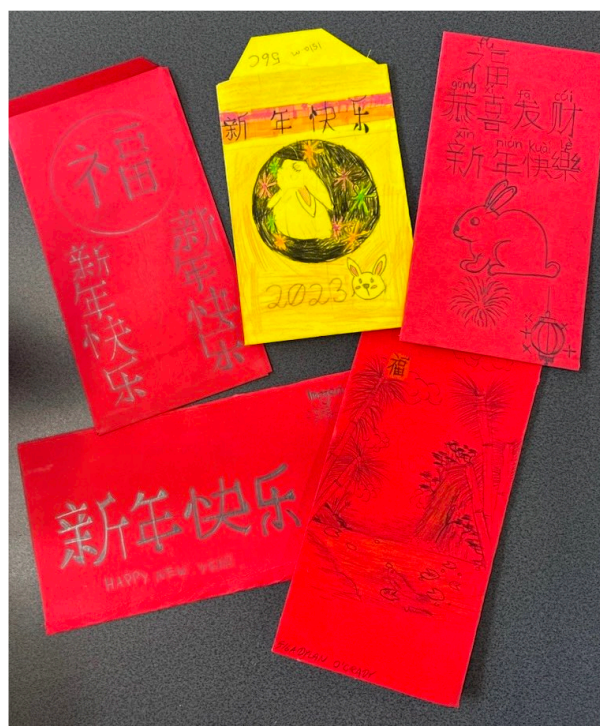 福
新年快乐
新年快乐
56C
新年快乐
2023
fú
福
gōng xǐ fā cái
恭喜发财
xīn nián kuài lè
新年快樂
新年快乐
HAPPY NEW YEAR
福